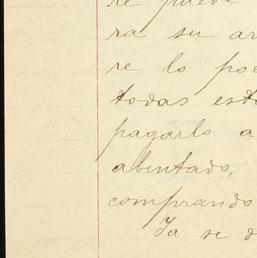 re puede
ra su ar
re lo poc
todas esto
pagarlo a
abintado,
comprando
Ya se d